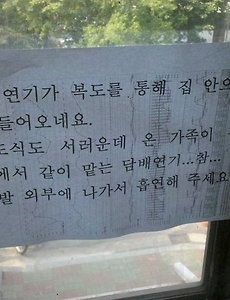 연기가 복도를 통해 집 안으
들어오네요.
도식도 서러운데 온 가족이
에서 같이 맡는 담배연기...참...
발 외부에 나가서 흡연해 주세요